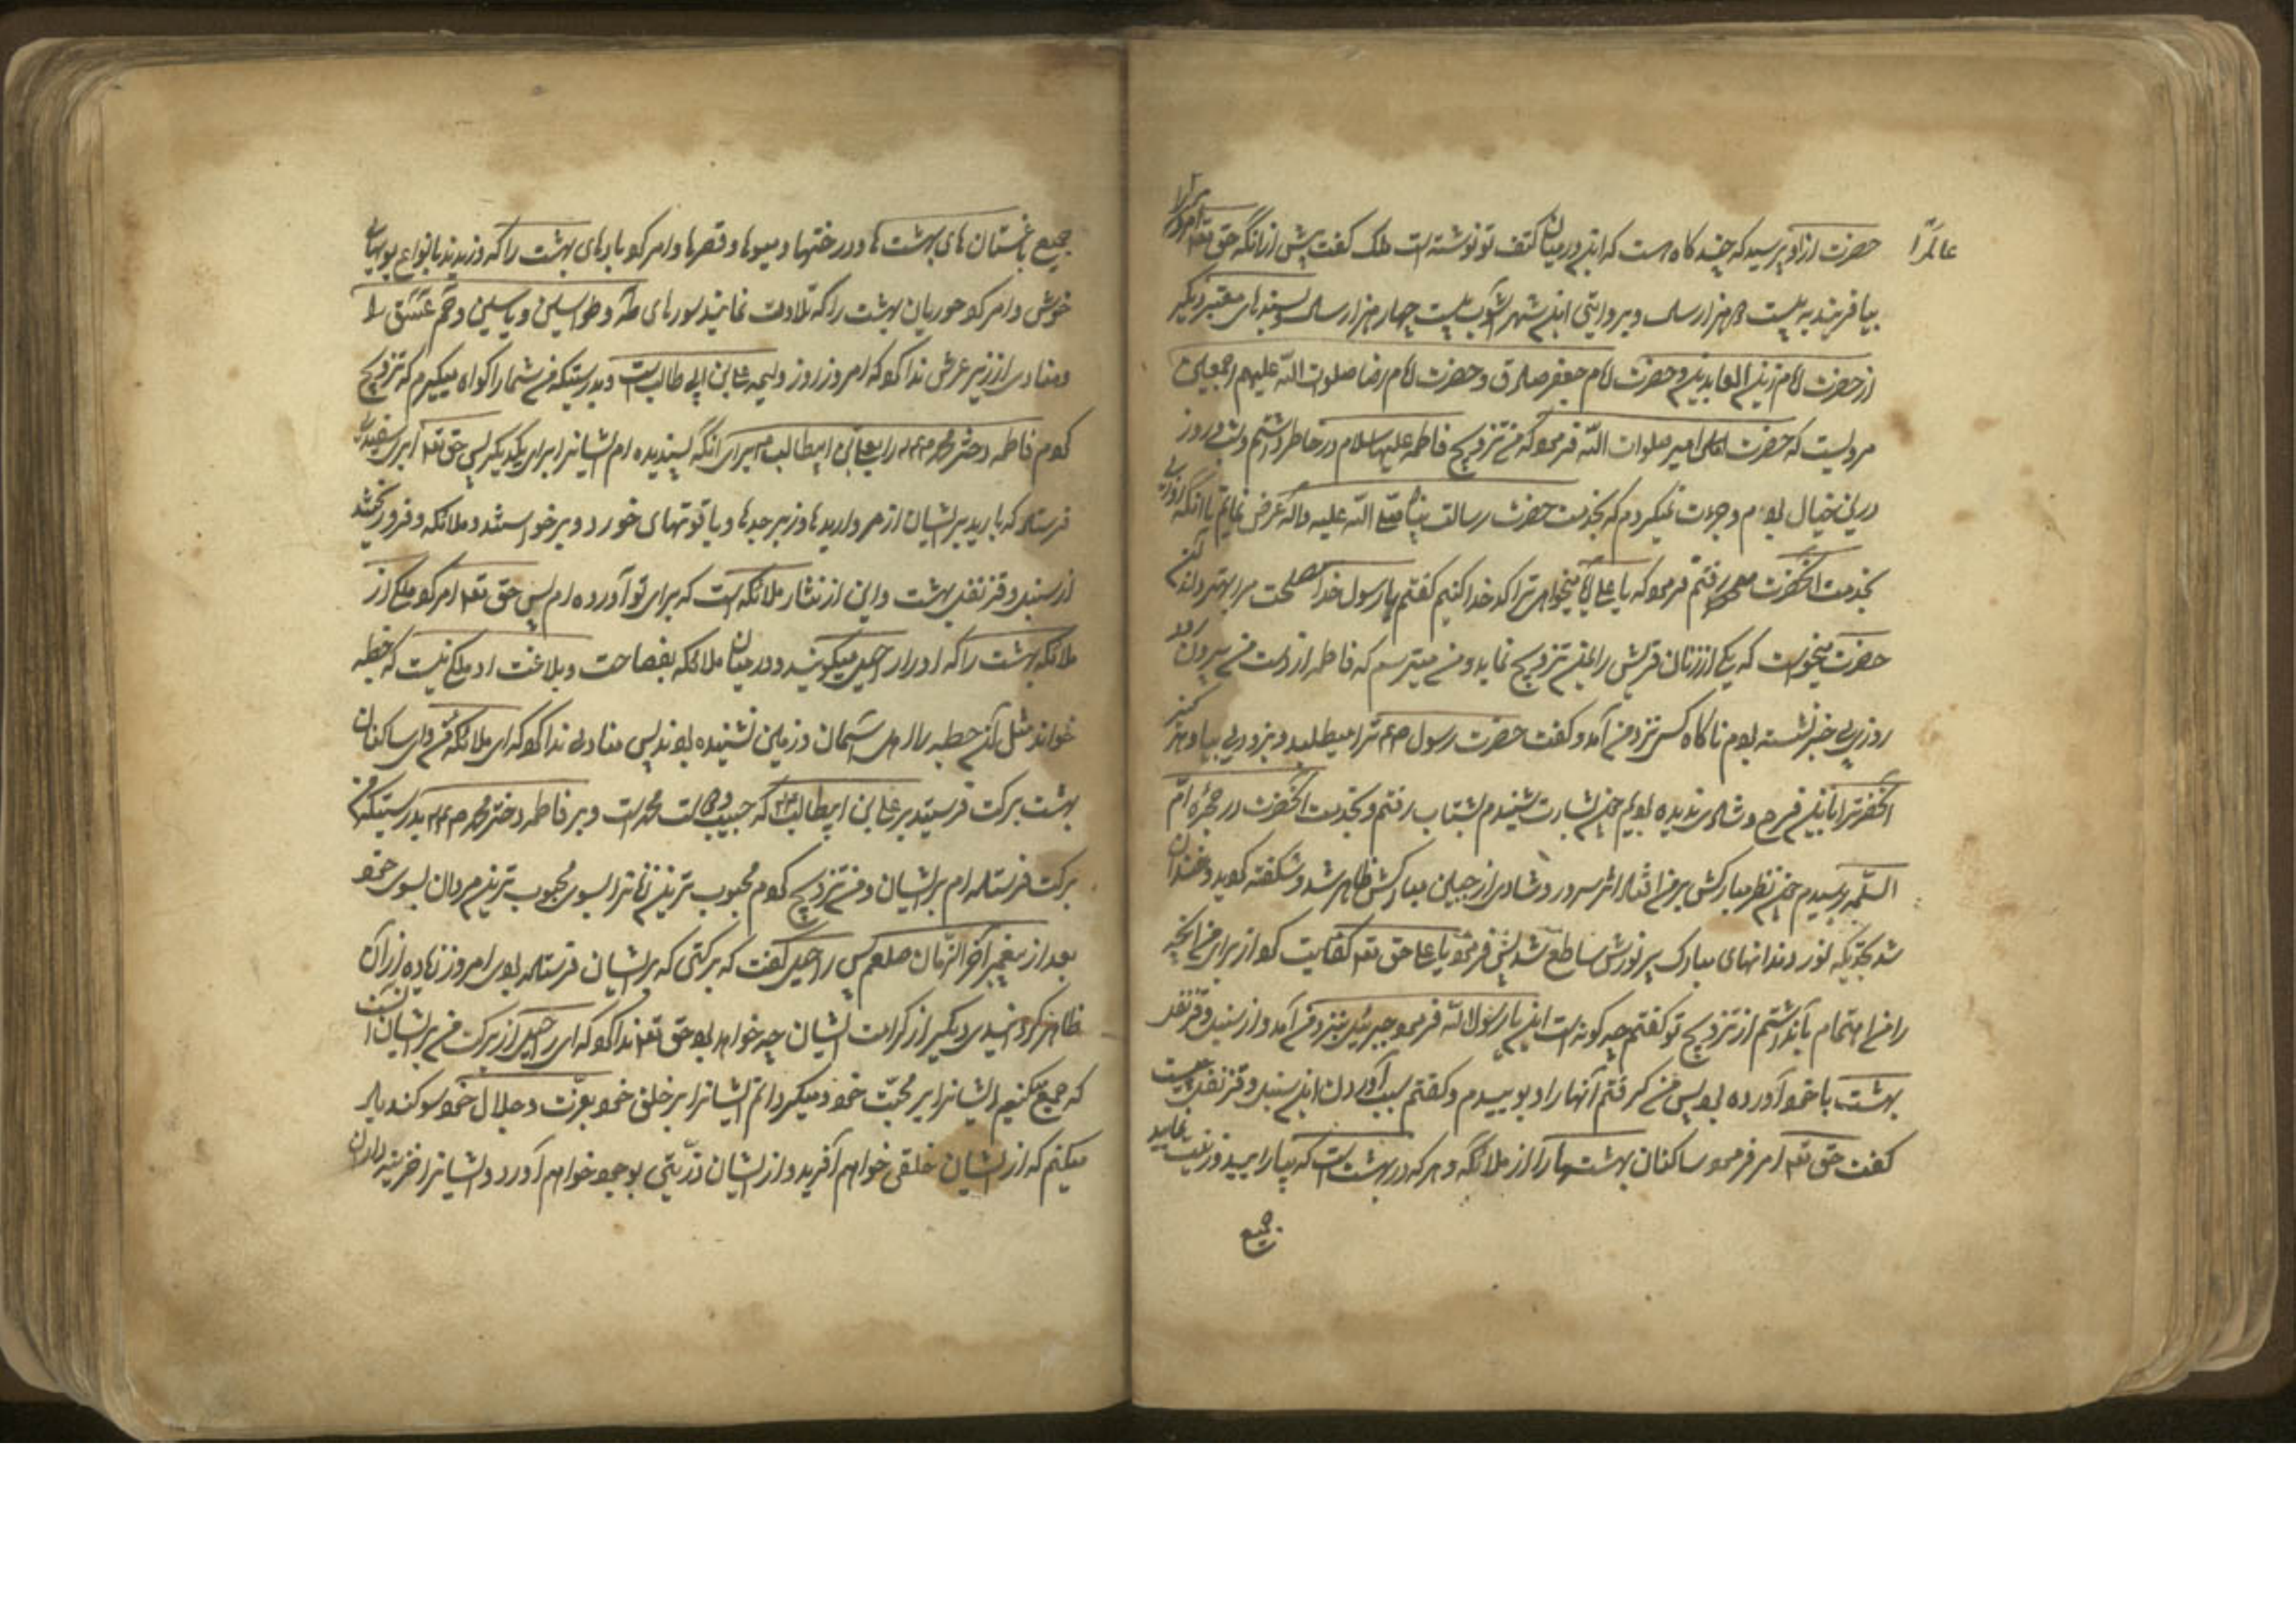 حضرت از او پرسید که چند گاه است که این در میان کتف تو نوشته است ملک گفت پیش از آنکه حق تعه آدم را
عالم را
بیافریند به بیست هزار سال و بروایتی ابن شهر آشوب بیست چهار هزار سال و بسندهای معتبر دیگر
از حضرت امام زین العابدین و حضرت امام جعفر صادق و حضرت امام رضا صلوات الله علیهم اجمعین
مرویست که حضرت امیر صلوات الله فرمود که من تزویج فاطمه علیها سلام در خاطر داشتم و شب و روز
درین خیال بودم و جرءت نمیکردم که بخدمت حضرت رسالت پناه صلی الله علیه واله عرض نمایم تا آنکه روزی
بخدمت آنحضرت رفتم فرمود که یا علی آیا میخواهی ترا کدخدا کنیم گفتم یا رسول خدا مصلحت مرا بهتر داند
حضرت میخواست که یکی از زنان قریش را بمن تزویج نماید و من میترسم که فاطمه از دست من بیرون رود
روزی بی خبر نشسته بودم ناگاه کسی نزد من آمد و گفت حضرت رسول صعم ترا میطلبد و بزودی بیا و هرگز
آنحضرترا باین فرح و شادی ندیده بودیم چون بشارت شنیدم بشتاب رفتم و بخدمت آنحضرت در حجره ام
السلمه رسیدم چون نظر مبارکش بر من افتاد اثر سرور و شادی از جبین مبارکش ظاهر شد و شگفته گردید و خندان
شد بحدیکه نور دندانهای مبارک پر نورش ساطع شد پس فرمود یا علی حق تعه کفایت کرد از برای من آنچه
را من اهتمام بآن داشتم از تزویج تو گفتم چگونه است این یا رسول الله فرمود جبرئیل بنزد من آمد و از سنبل و قرنفل
بهشت با خود آورده بود پس من گرفتم آنها را و بوییدم و گفتم سبب آوردن این سنبل و قرنفل چیست
گفت حق تعه امر فرمود ساکنان بهشتها را از ملائکه و هر که در بهشت است که بیارایید و زینت نمایید
جمیع
جمیع باغستان های بهشت ها و درختها و میوها و قصرها و امر کرد بادهای بهشت را که وزیدند بانواع بویهای
خوش و امر کرد حوریان بهشت را که تلاوت نمایند سورهای طه و طواسین و یاسین و حم عسق را
و منادی از زیر عرش ندا کرد که امروز روز ولیمه علی بن ابی طالب است و بدرستیکه من شما را گواه میگیرم که تزویج
کردم فاطمه دختر محمد را بعلی بن ابیطالب برای آنکه پسندیده ام ایشانرا برای یکدیگر پس حق تعه ابری سفیدی
فرستاد که بارید بر ایشان از مرواریدها و زبرجدها و یاقوتهای خورد و برخواستند ملائکه و فرو ریختند
از سنبل و قرنفل بهشت و این از نثار ملائکه است که برای تو آورده ام پس حق تعه امر کرد ملکی از
ملائکه بهشت را که او را راحیل میگویند و در میان ملائکه بفصاحت و بلاغت او ملکی نیست که خطبه
خواند مثل آن خطبه را اهل آسمان و زمین نشنیده بودند پس منادی ندا کرد که ای ملائکه من و ای ساکنان
بهشت برکت فرستید بر علی بن ابیطالب که حبیب محمد است و بر فاطمه دختر محمد بدرستیکه من
برکت فرستاده ام بر ایشان و من تزویج کردم محبوب ترین زنانرا بسوی محبوب ترین مردان بسوی خود
بعد از پیغمبر آخر الزمان صلعم پس راحیل گفت که برکتی که بر ایشان فرستاده بودی امروز زیاده از آن
ظاهر کردانیدی دیگر از کرامت ایشان چه خواهد بود حق تعه ندا کرد که ای راحیل از برکت من بر ایشان آنست
که جمع میکنیم ایشانرا بر محبت خود و میگردانم ایشانرا بر خلق خود بعزت و جلال خود سوگند یاد
میکنم که از ایشان خلقی خواهم آفرید و از ایشان ذریتی بوجود خواهم آورد و ایشانرا خزینه داران